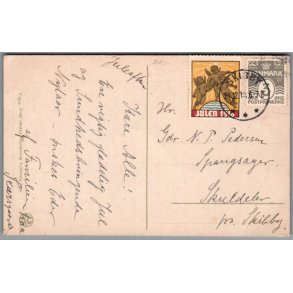 Juleaften
Kære Alle!
En rigtig glædelig Jul
og Sundhedsbringende
Nytaar - ønskes Eder
af Familien
JULEN 19
DANMARK
POSTFRIMÆRKE
Gdr. N. P. Pedersen
Spangsager
Skuldelev
pr. Skibby